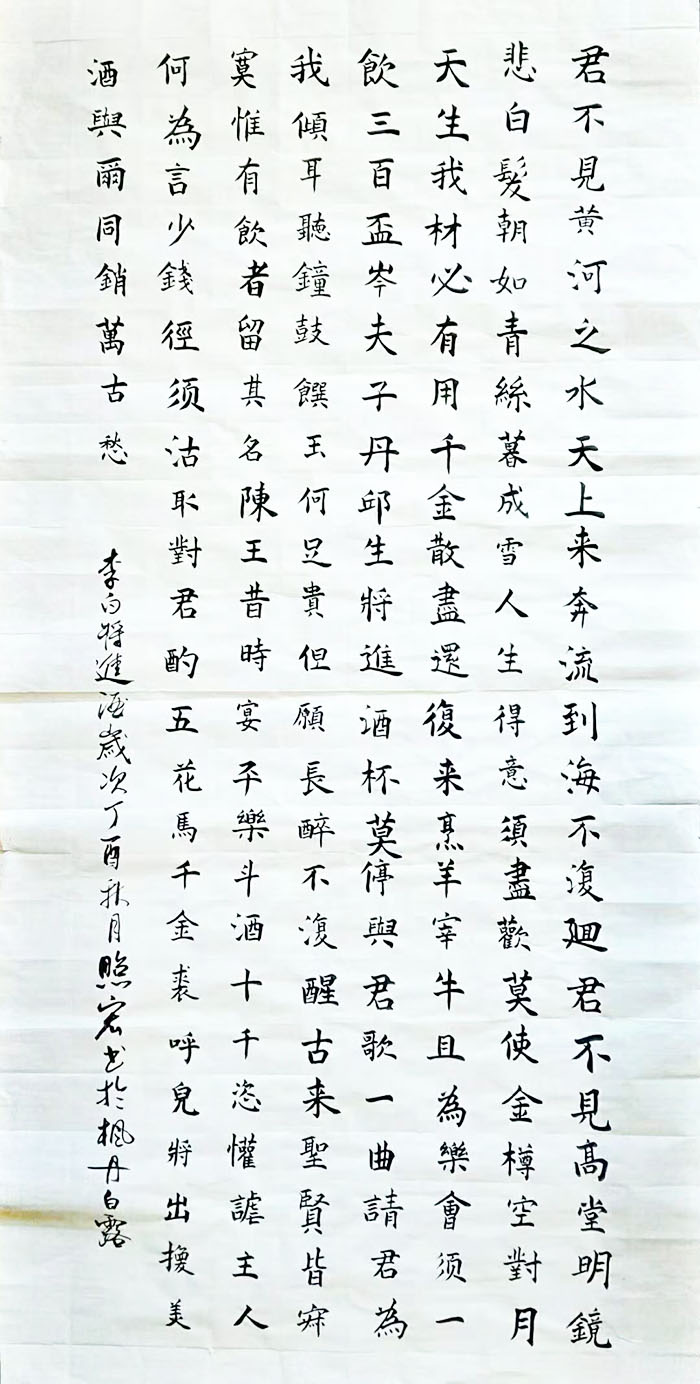 君不見黄河之水天上来奔流到海不復廻君不見高堂明鏡
悲白髮朝如青絲暮成雪人生得意須盡歡莫使金樽空對月
天生我材必有用千金散盡還復来烹羊宰牛且為樂會须一
飲三百盃岑夫子丹邱生將進酒杯莫停與君歌一曲請君為
我傾耳聽鐘鼓饌玉何足貴但願長醉不復醒古来聖賢皆寂
寞惟有飲者留其名陳王昔時宴平樂斗酒十千恣懽謔主人
何為言少錢徑须沽取對君酌五花馬千金裘呼兒將出換美
酒與爾同銷萬古愁
李白将進酒歲次丁酉秋月照宏书於楓丹白露